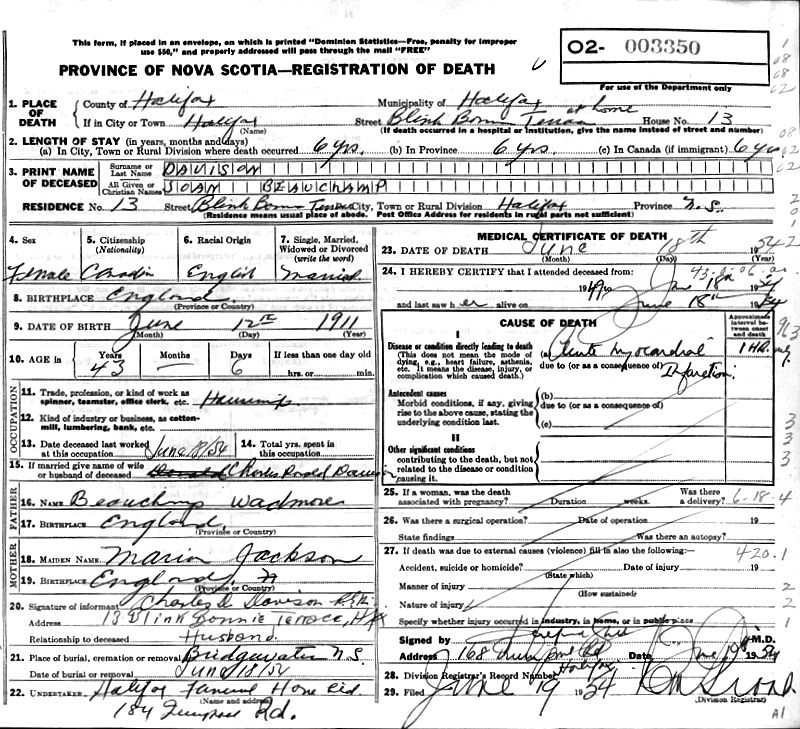 This form, if placed in an envelope, on which is printed "Dominion Statistics—Free, penalty for improper
use $50," and properly addressed will pass through the mail "FREE"
02- 003350
PROVINCE OF NOVA SCOTIA—REGISTRATION OF DEATH
For use of the Department only
1. PLACE OF DEATH County of Halifax Municipality of Halifax
If in City or Town Halifax (Name) Street at home House No. 13
(If death occurred in a hospital or institution, give the name instead of street and number)
2. LENGTH OF STAY (in years, months and days)
(a) In City, Town or Rural Division where death occurred 6 yrs. (b) In Province 6 yrs. (c) In Canada (if immigrant) 6 yrs
3. PRINT NAME OF DECEASED Surname or Last Name DAVISON
All Given or Christian Names JOAN BEAUCHAMP
RESIDENCE No. 13 Street Blink Bonnie Terrace City, Town or Rural Division Halifax Province N.S.
(Residence means usual place of abode. Post Office Address for residents in rural parts not sufficient)
4. Sex 5. Citizenship (Nationality) 6. Racial Origin 7. Single, Married, Widowed or Divorced (write the word)
Female Canadian English Married
8. BIRTHPLACE England
(Province or Country)
9. DATE OF BIRTH June 12th 1911
(Month) (Day) (Year)
10. AGE in Years 43 Months — Days 6 If less than one day old
hrs. or min.
OCCUPATION
11. Trade, profession, or kind of work as spinner, teamster, office clerk, etc. Housewife
12. Kind of industry or business, as cotton-mill, lumbering, bank, etc.
13. Date deceased last worked at this occupation June 18/54 14. Total yrs. spent in this occupation
15. If married give name of wife or husband of deceased Charles Donald Davison
FATHER
16. NAME Beauchamp Wadmore
17. BIRTHPLACE England
(Province or Country)
MOTHER
18. MAIDEN NAME Marion Jackson
19. BIRTHPLACE England
(Province or Country)
20. Signature of informant Charles D. Davison
Address 13 Blink Bonnie Terrace, Hfx
Relationship to deceased Husband
21. Place of burial, cremation or removal Bridgewater N.S.
Date of burial or removal June 18/54
22. UNDERTAKER Halifax Funeral Home Ltd.
(Name and address)
MEDICAL CERTIFICATE OF DEATH
23. DATE OF DEATH June 18th 1954
(Month) (Day) (Year)
24. I HEREBY CERTIFY that I attended deceased from:
1949 to June 18th 1954
and last saw her alive on June 18th 1954
CAUSE OF DEATH
Approximate interval between onset and death
I
Disease or condition directly leading to death
(This does not mean the mode of dying, e.g., heart failure, asthenia, etc. It means the disease, injury, or complication which caused death.
(a) Acute Myocardial 1 HR.
due to (or as a consequence of) Infarction.
Antecedent causes
Morbid conditions, if any, giving rise to the above cause, stating the underlying condition last.
(b)
due to (or as a consequence of)
(c)
II
Other significant conditions
contributing to the death, but not related to the disease or condition causing it.
25. If a woman, was the death associated with pregnancy? Duration weeks. Was there a delivery? 6-18-4
26. Was there a surgical operation? Date of operation 19
State findings Was there an autopsy?
27. If death was due to external causes (violence) fill in also the following:— 420.1
Accident, suicide or homicide? Date of injury 19
(State which)
Manner of injury
(How sustained)
Nature of injury
Specify whether injury occurred in industry, in home, or in public place
Signed by M.D.
Address 168 Date June 19 1954
28. Division Registrar's Record Number Halifax
29. Filed June 19 1954
(Division Registrar)
A1